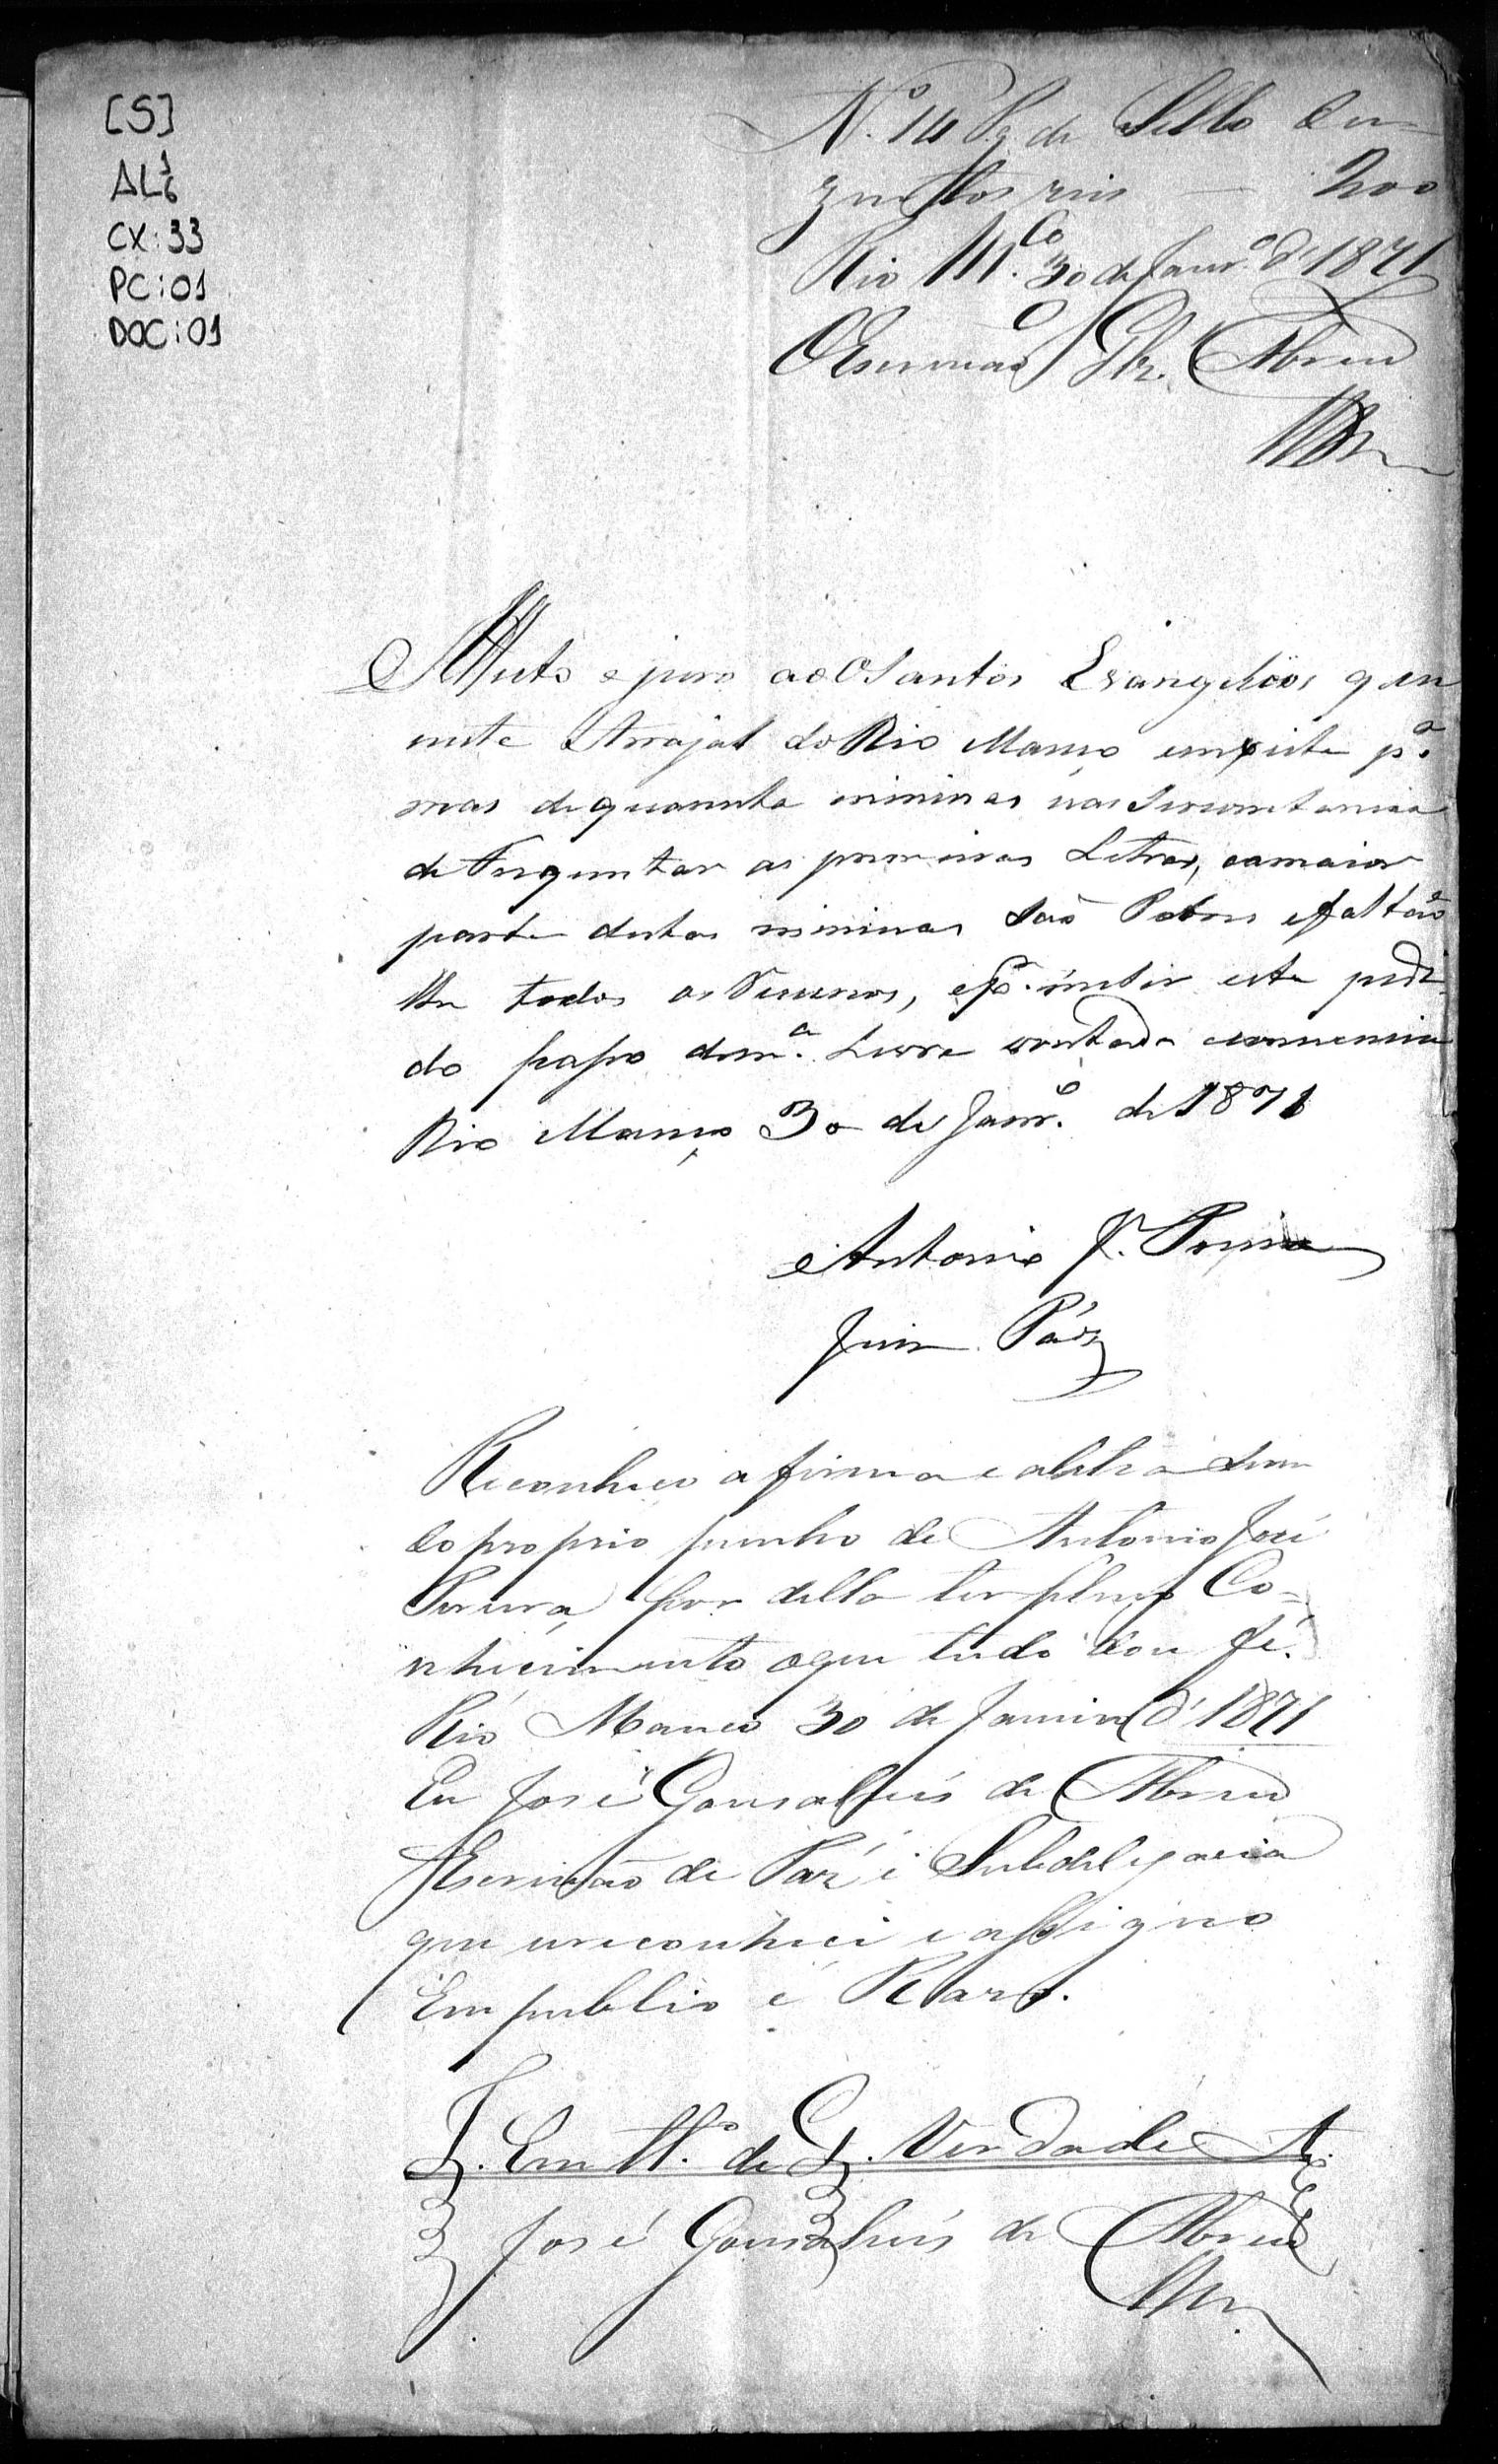 [5]
AL 1/6
CX: 33
PC: 01
DOC: 01
N.º 14 Pg de Sello du-
zentos reis — 200
Rio M.co 30 de Janr.º d'1871
O Escrivaõ Glz. Abreu
Attesto e juro aos Santos Evangelhos que
neste Arrajal do Rio Manso existe p.ª
mas de quarenta mininas nas Sircunstancias
de Frequntar as primeiras Letras, eamaior
parte destas mininas saõ Pobres efaltaõ
lhe todos os Recursos, e
do passo dem.ª Livre vontade
Rio Manso 30 de Janr.º de 1871
Antonio J.e Pereira
Juis Páz
Reconheco a firma e a letra
do proprio punho de Antonio José
Pereira, por della ter pleno Co-
nhecimento oque tudo dou fé.
Rio Manco 30 de Janeiro d'1871
Eu José Gonsalvis de Abreu
Escrivão de Paz é Subdelegacia
que reconheci e assigno
Em publico é Razo.
Em tt.º de Verdade
José Gonsalvis de Abreu